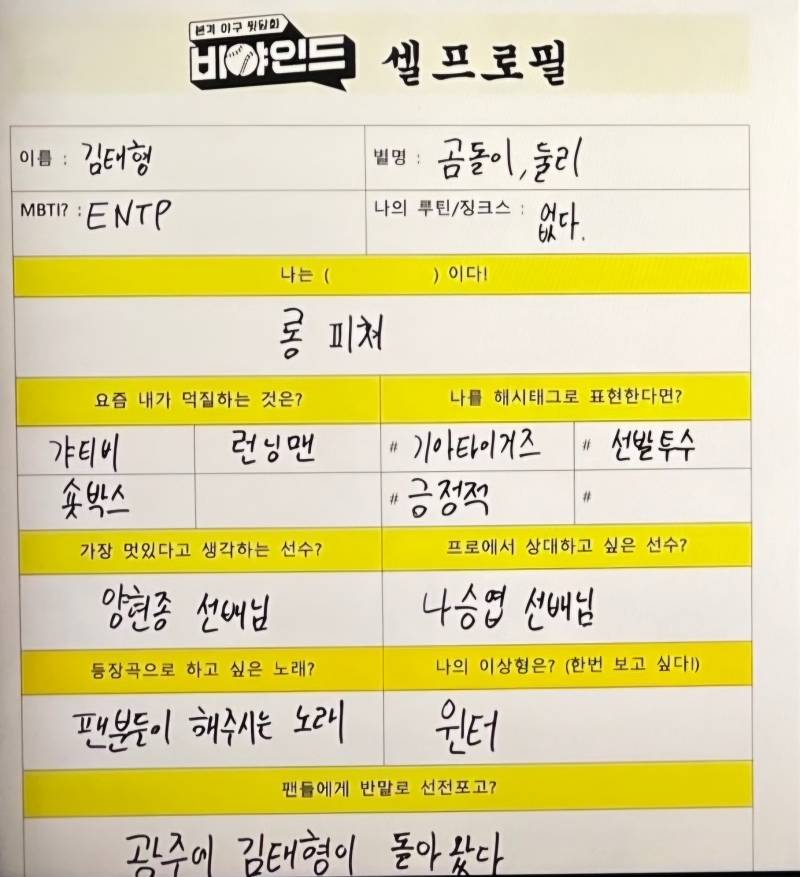 본격 야구 뒷담화
비야인드 셀프로필
이름 : 김태형 별명 : 곰돌이, 둘리
MBTI? : ENTP 나의 루틴/징크스 : 없다.
나는 ( ) 이다!
롱 피쳐
요즘 내가 덕질하는 것은? 나를 해시태그로 표현한다면?
갸티비 런닝맨 # 기아타이거즈 # 선발투수
숏박스 # 긍정적 #
가장 멋있다고 생각하는 선수? 프로에서 상대하고 싶은 선수?
양현종 선배님 나승엽 선배님
등장곡으로 하고 싶은 노래? 나의 이상형은? (한번 보고 싶다!)
팬분들이 해주시는 노래 윈터
팬들에게 반말로 선전포고?
광주에 김태형이 돌아왔다